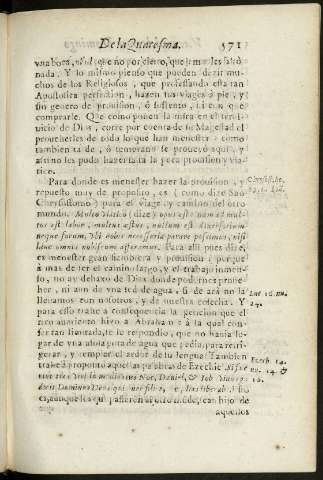 De la Quaresma. 571
vna boca, que no por cierto, que jamas les falto
nada. Y lo mismo pienso que pueden dezir mu-
chos de los Religiosos, que professando esta tan
Apostolica perfecion, hazen sus viages à pie, y
sin genero de prouision, ò sustento, ni con que
comprarle. Que como ponen la mira en el ser-
uicio de Dios, corre por cuenta de su Magestad el
proueherles de todo lo que han menester: como
tambien ta de, ò temprano te proueyò aqui, y
assi no les pudo hazer falta la poca prouision y via-
tico.
Para donde es menester hazer la prouision, y
repuesto muy de proposito, es (como dize San
Chrysostomo) para el viage y camino del otro
mundo. Multo viatico (dize) opus est: nam at mul-
tus est labor, multus æstus, nullum est diuersorium
neque forum. Vbi nobis necessaria parare possimus, nisi
hinc omnia nobiscum afferamus. Para alli pues dize,
es menester gran fiambrera y prouision: porque
à mas de ser el camino largo, y el trabajo inmen-
so, no ay debaxo de Dios donde podernos proue-
her, ni aun de vna sed de agua, si de acà no la
lleuamos con nosotros, y de nuestra cosecha. Y
para esto trahe a consequencia la peticion que el
rico auariento hizo a Abraham: à la qual con
ser tan limitada, se le respondio, que no hauia lu-
gar de vna sola gota de agua que pedia, para refri-
gerar, y templar el ardor de su lengua. Tambien
trahe à proposito aquellas palabras de Ezechiel: Si fue-
rint tres viri in medio eius Noe, Daniel, & Iob
dicit Dominus Deus, quia nec filios, &c. liberab
es, aunque los que passieren al otro mundo, ean hijo de
aquellos
Chrysost. ho.
Luc. 16. nu.
24.
Ezech. 14.
nu. 14. &